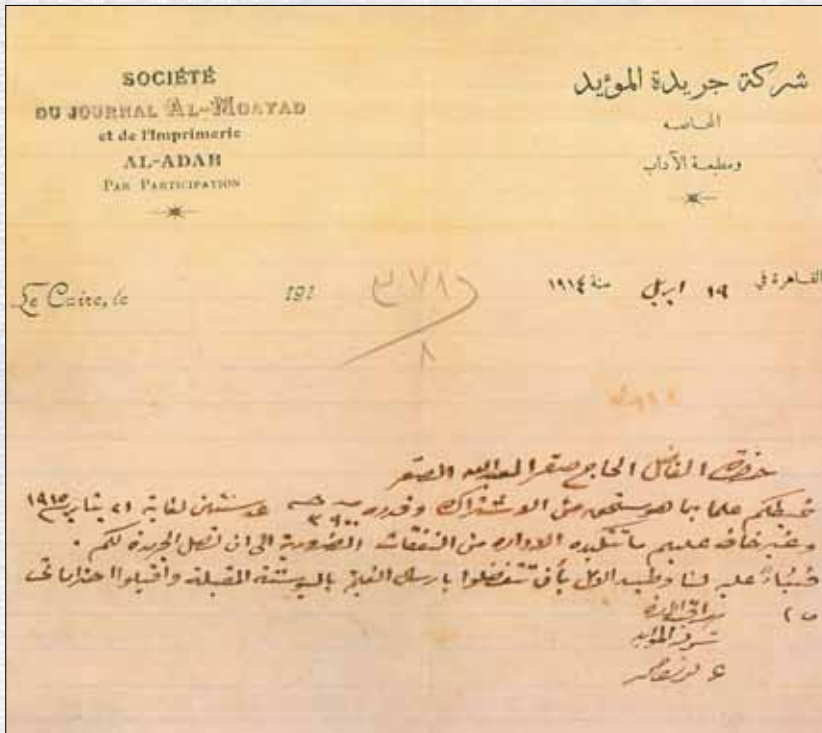 SOCIÉTÉ
DU JOURNAL AL-MOAYAD
et de l'Imprimerie
AL-ADAB
PAR PARTICIPATION
شركة جريدة المؤيد
الخاصه
ومطبعة الآداب
Le Caire, le 191
القاهرة في ١٩ ابريل سنة ١٩١٤
٣٧٨
٨
حضرة الفاضل الحاج صقر العبدالله الصقر
نحيطكم علما بما هو مستحق من الاشتراك وقدره عن سنتين لغاية ٢١ يناير ١٩١٥
وغير خاف عليكم ما تتكبده الاداره من النفقات الضرورية الى ان تصل الجريدة لكم .
فبناءً عليه لنا وطيد الامل بأن تتفضلوا بارسال المبلغ بالبوستة المقبلة واقبلوا احتراماتى
شركة المؤيد